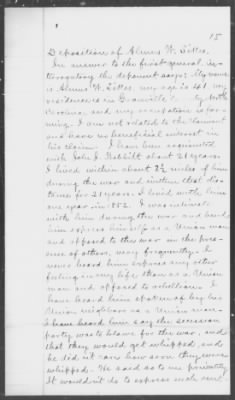 15
Deposition of Alines W. Lilles.
In answer to the first general In-
terrogatory the deponent says: My name
is W. Lilles, my age is 41 my
residence is in Granville C. North
Carolina, and my occupation is far-
ming. I am not related to the claimant
and have no beneficial interest in
his claim. I have been acquainted
with John J. about 21 years.
I lived within about 2½ miles of him
during the war and within that dis-
tance for 21 years. I lived with him
one year in 1852. I was intimate
with him during the war and heard
him express himself as a Union man
and opposed to the war in the pres-
ence of others, very frequently. I
never heard him express any other
feeling in my life than as a Union
man and opposed to rebellion. I
have heard him spoken of by his
Union neighbors as a Union man.
I have heard him say the secession
party was to blame for the war, and
that they would get whipped, and
he did not care how soon they were
whipped. He said so to me privately
It wouldn't do to express such sent-